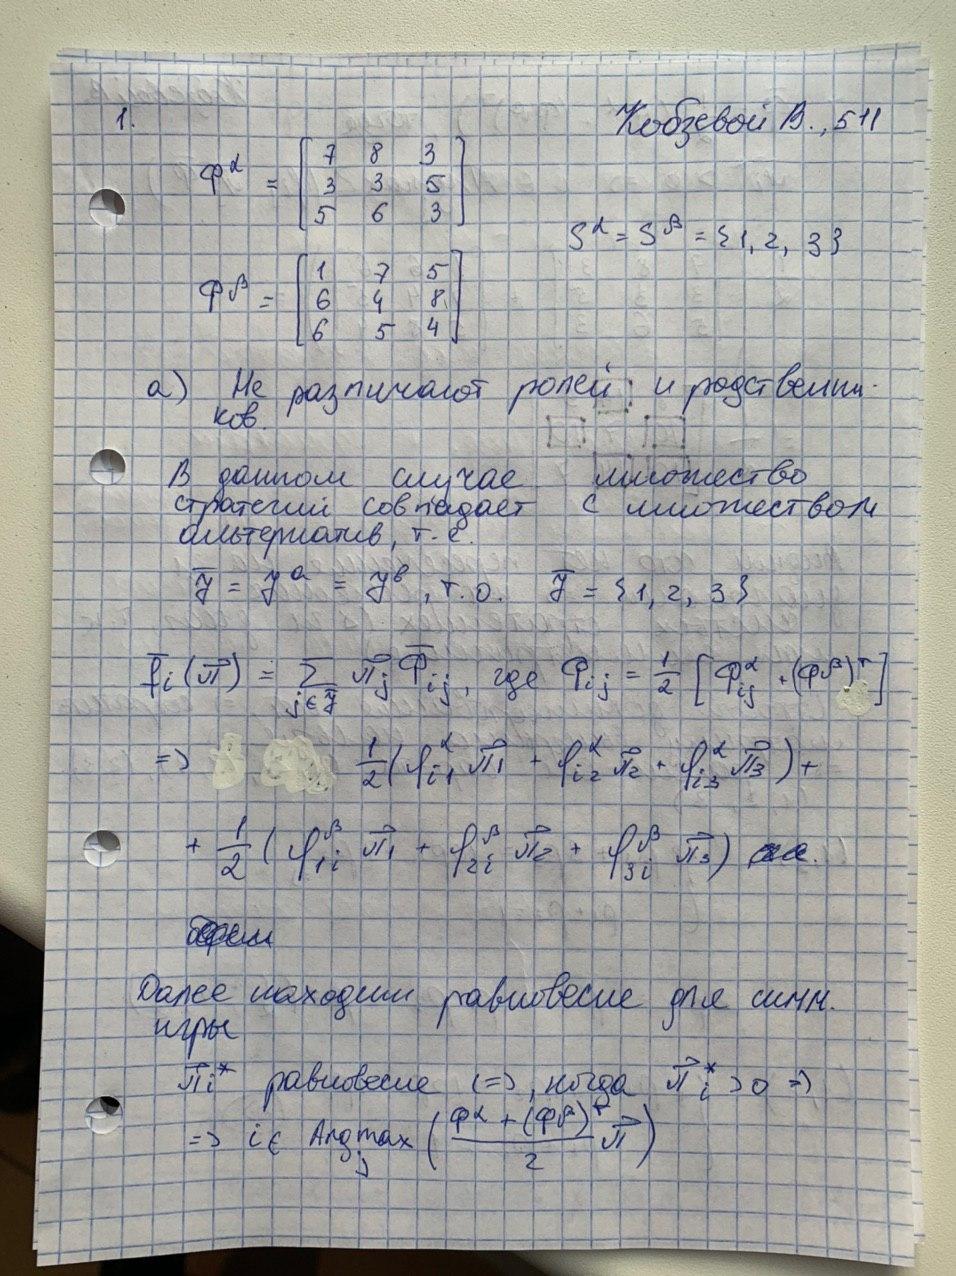 1. Кобзевой В., 511
Φ^α = [7 8 3
3 3 5
5 6 3]
S^α = S^β = {1, 2, 3}
Φ^β = [1 7 5
6 4 8
6 5 4]
а) Не различают ролей и родственни-
ков.
В данном случае множество
стратегий совпадает с множеством
альтернатив, т.е.
J̄ = J^a = J^b, т.о. J̄ = {1, 2, 3}
f̄_i(π⃗) = Σ_{j∈J̄} π⃗_j Φ̄_ij, где Φ_ij = 1/2 [Φ^α_ij + (Φ^β)^T]
=> 1/2 (φ^α_i1 π⃗_1 + φ^α_i2 π⃗_2 + φ^α_i3 π⃗_3) +
+ 1/2 (φ^β_1i π⃗_1 + φ^β_2i π⃗_2 + φ^β_3i π⃗_3)
Далее находим равновесие для симм.
игры
π⃗_i* равновесие <=>, когда π⃗_i* > 0 =>
=> i ∈ Argmax_j ((Φ^α + (Φ^β)^T)/2 π⃗)